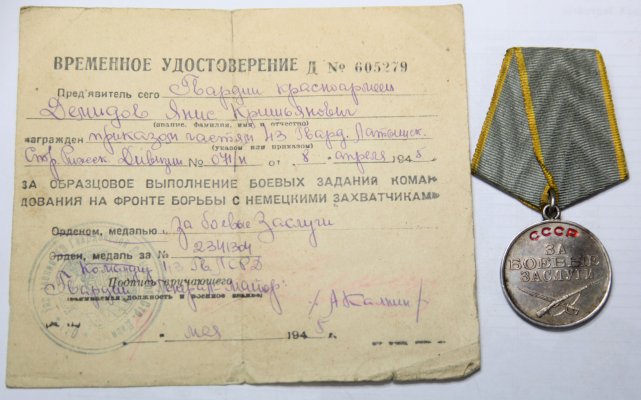 ВРЕМЕННОЕ УДОСТОВЕРЕНИЕ Д № 605279
Пред'явитель сего Гвардии красноармеец
Демидов Янис Кришьянович
(звание, фамилия, имя, отчество)
награжден приказом частям 43 Гвард. Латышск.
(указом или приказом)
Стр. Рижск. Дивизии № 041/н от 8 апреля 1945
ЗА ОБРАЗЦОВОЕ ВЫПОЛНЕНИЕ БОЕВЫХ ЗАДАНИЙ КОМАН
ДОВАНИЯ НА ФРОНТЕ БОРЬБЫ С НЕМЕЦКИМИ ЗАХВАТЧИКАМИ
Орденом, медалью За боевые Заслуги
Орден, медаль за № 2341304
Командир 43 Гв.
Подпись вручающего
Гвардии майор
мая 1945
СССР
ЗА
БОЕВЫЕ
ЗАСЛУГИ